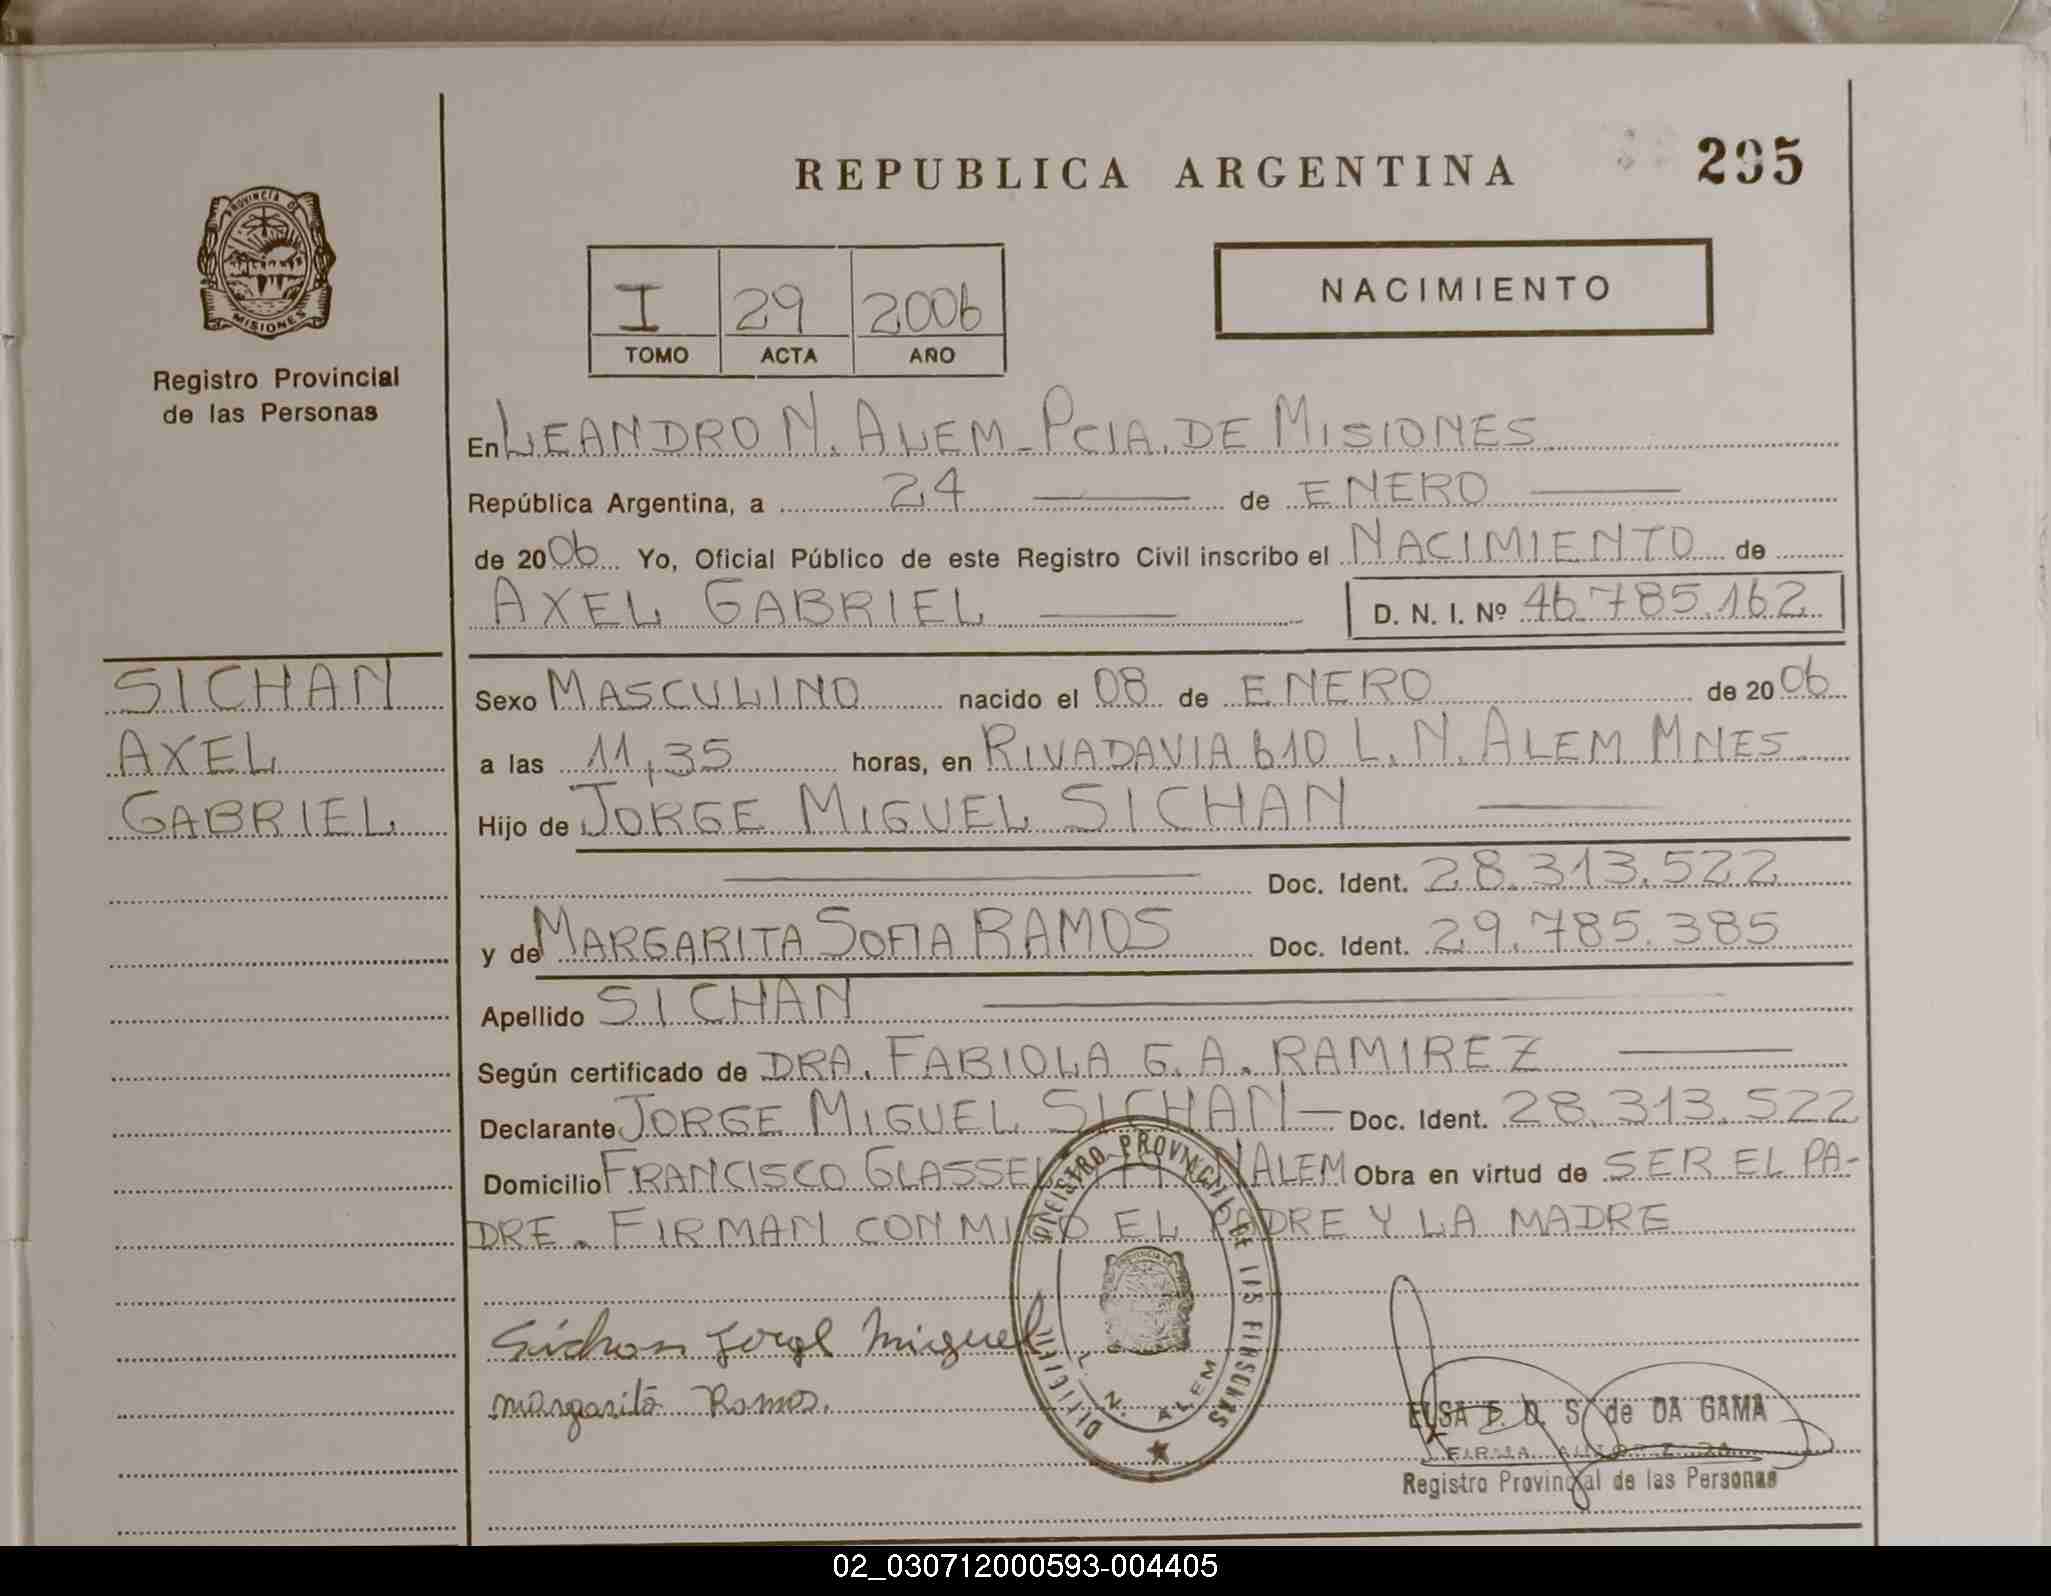 REPUBLICA ARGENTINA
295
PROVINCIA DE
MISIONES
Registro Provincial
de las Personas
I 29 2006
TOMO ACTA AÑO
NACIMIENTO
En LEANDRO N. ALEM - PCIA. DE MISIONES
República Argentina, a 24 de ENERO
de 2006 Yo, Oficial Público de este Registro Civil inscribo el NACIMIENTO de
AXEL GABRIEL D. N. I. Nº 46.785.162
SICHAN
AXEL
GABRIEL
Sexo MASCULINO nacido el 08 de ENERO de 2006
a las 11,35 horas, en RIVADAVIA 610 L. N. ALEM MNES
Hijo de JORGE MIGUEL SICHAN
Doc. Ident. 28.313.522
y de MARGARITA SOFIA RAMOS Doc. Ident. 29.785.385
Apellido SICHAN
Según certificado de DRA. FABIOLA G. A. RAMIREZ
Declarante JORGE MIGUEL SICHAN - Doc. Ident. 28.313.522
Domicilio FRANCISCO ALEM Obra en virtud de SER EL PA-
DRE. FIRMAN CONMIGO EL PADRE Y LA MADRE
Sichan Jorge Miguel
margarita Ramos.
REGISTRO PROVINCIAL DE LAS PERSONAS
L. N. ALEM
ELSA de DA GAMA
FIRMA AUTORIZADA
Registro Provincial de las Personas
02_030712000593-004405